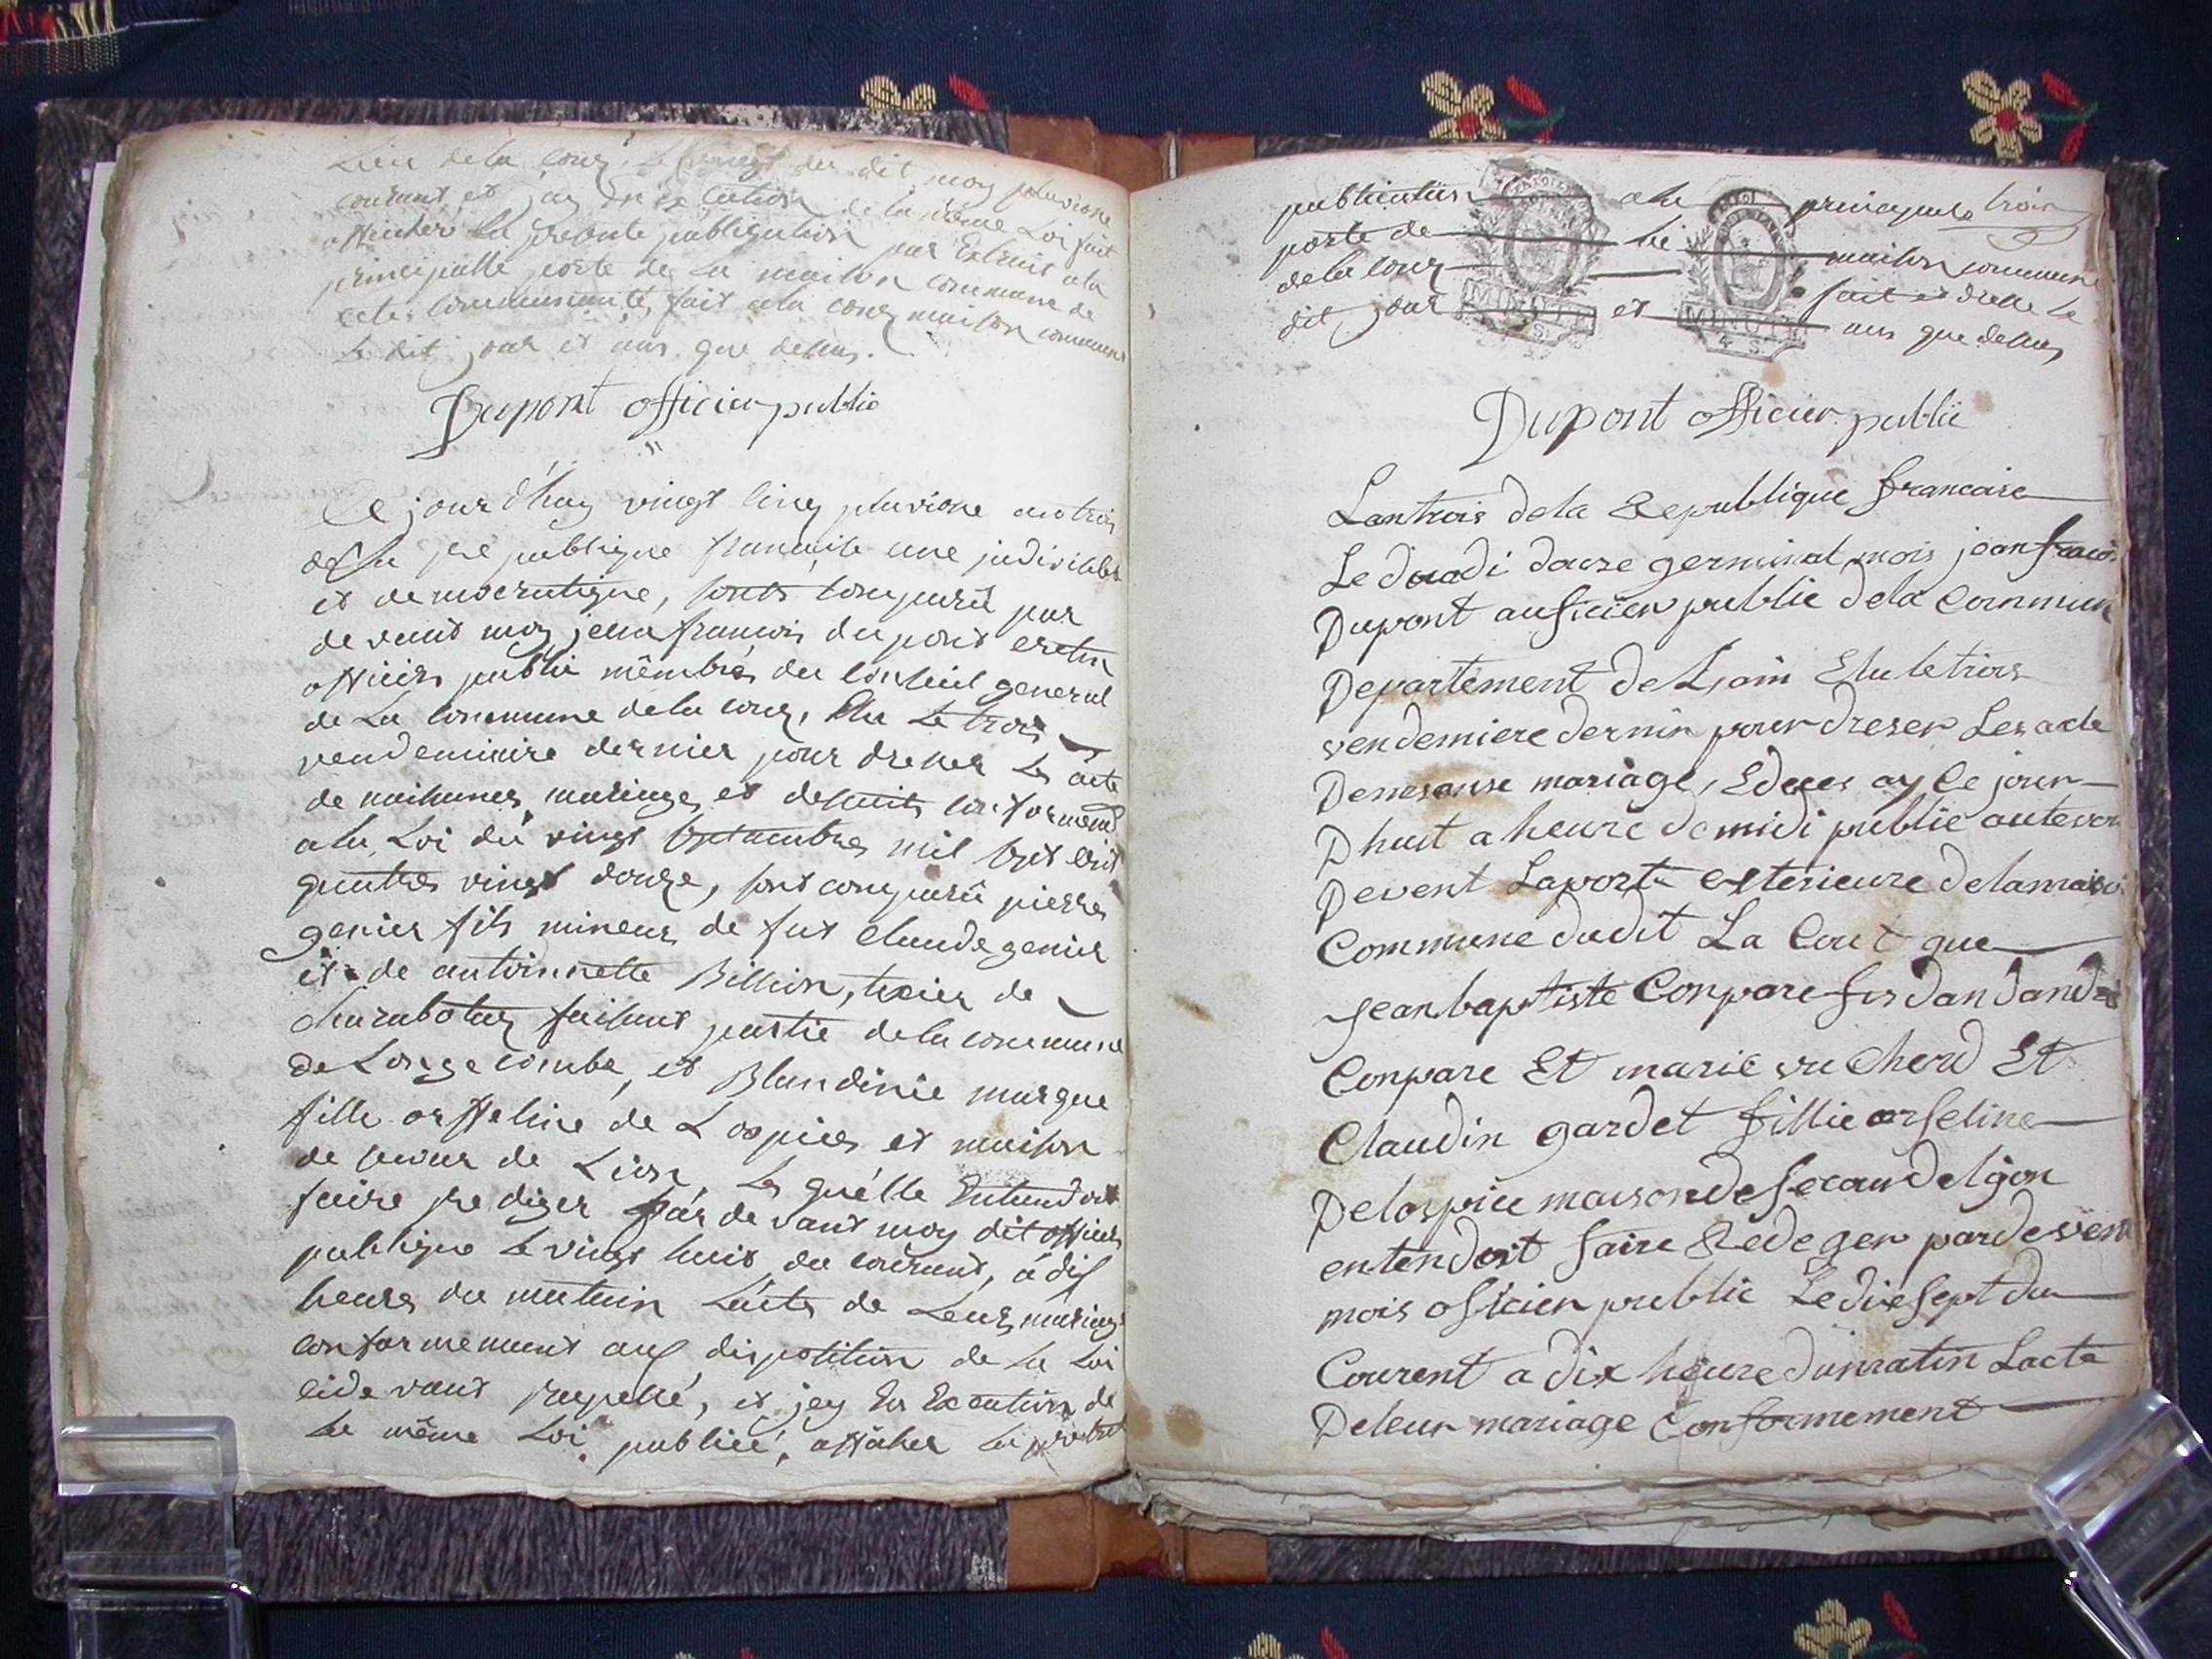 Lieu dela Cour, Le vingt du dit moy pluviose
courant et jay En Execution de la même Loi fait
afficher la presente publiquation par Extrait ala
principalle porte de la maison commune de
cete communauté, fait ala cour maison commune
Le dit jour et ans que dessus.
Dupont officier public
Ce jour d'huy vingt cinq pluviose an trois
de la republique francaise une indivisible
et democratique, sonts comparû par
devant moy jean francois dupont
officier public mêmbre du conseil general
de La commune dela cour, Elu Le trois
vendemiaire dernier pour dresser Les acte
de naissances mariages et desceits conformem
ala Loi du vingt septembre mil sept cent
quatre vingt douze, sont comparû pierre
genier fils mineur de fut Claude genier
et de antoinnette Billion, texier de
charabotay faisant partie dela commune
de Longecombe, et Blandinie marque
fille orffeline de Lospices et maison
de secour de Lion, Les quélle Entendent
faire rediger par devant moy dit officier
publique Le vingt huit du courant, á dix
heures du matin Lacte de Leur mariage
conformement aux disposition de la Loi
cidevant rapellé, et jey En Execution de
La même Loi publiee, afficher La
publication ala principale trois
porte de La maison commune
dela cour fait et dresse Le
dit jour et ans que dessus
MINUTE
4 S.
MINUTE
4 S.
Dupont officier public
Lantrois dela Republique francaise
Le duodi douze germinal mois jean francois
Dupont auficier public dela Commun
Departement deLain Elu le trois
vendemiere dernir pour dreser Les acte
Denesanse mariage, Edeces ay Ce jour
Dhuit a heure de midi publie
Devent Laporte exterieure delamaison
Commune dudit La Cout que
Jean baptiste Conpare fis
Conpare Et marie vu Cherd Et
Claudin gardet fillie orfeline
Delospice maison de secour delyon
entendoit faire Redeger pardevent
mois oficier public Le dixsept du
Courent a dix heure dumatin Lacte
Deleur mariage Conformement